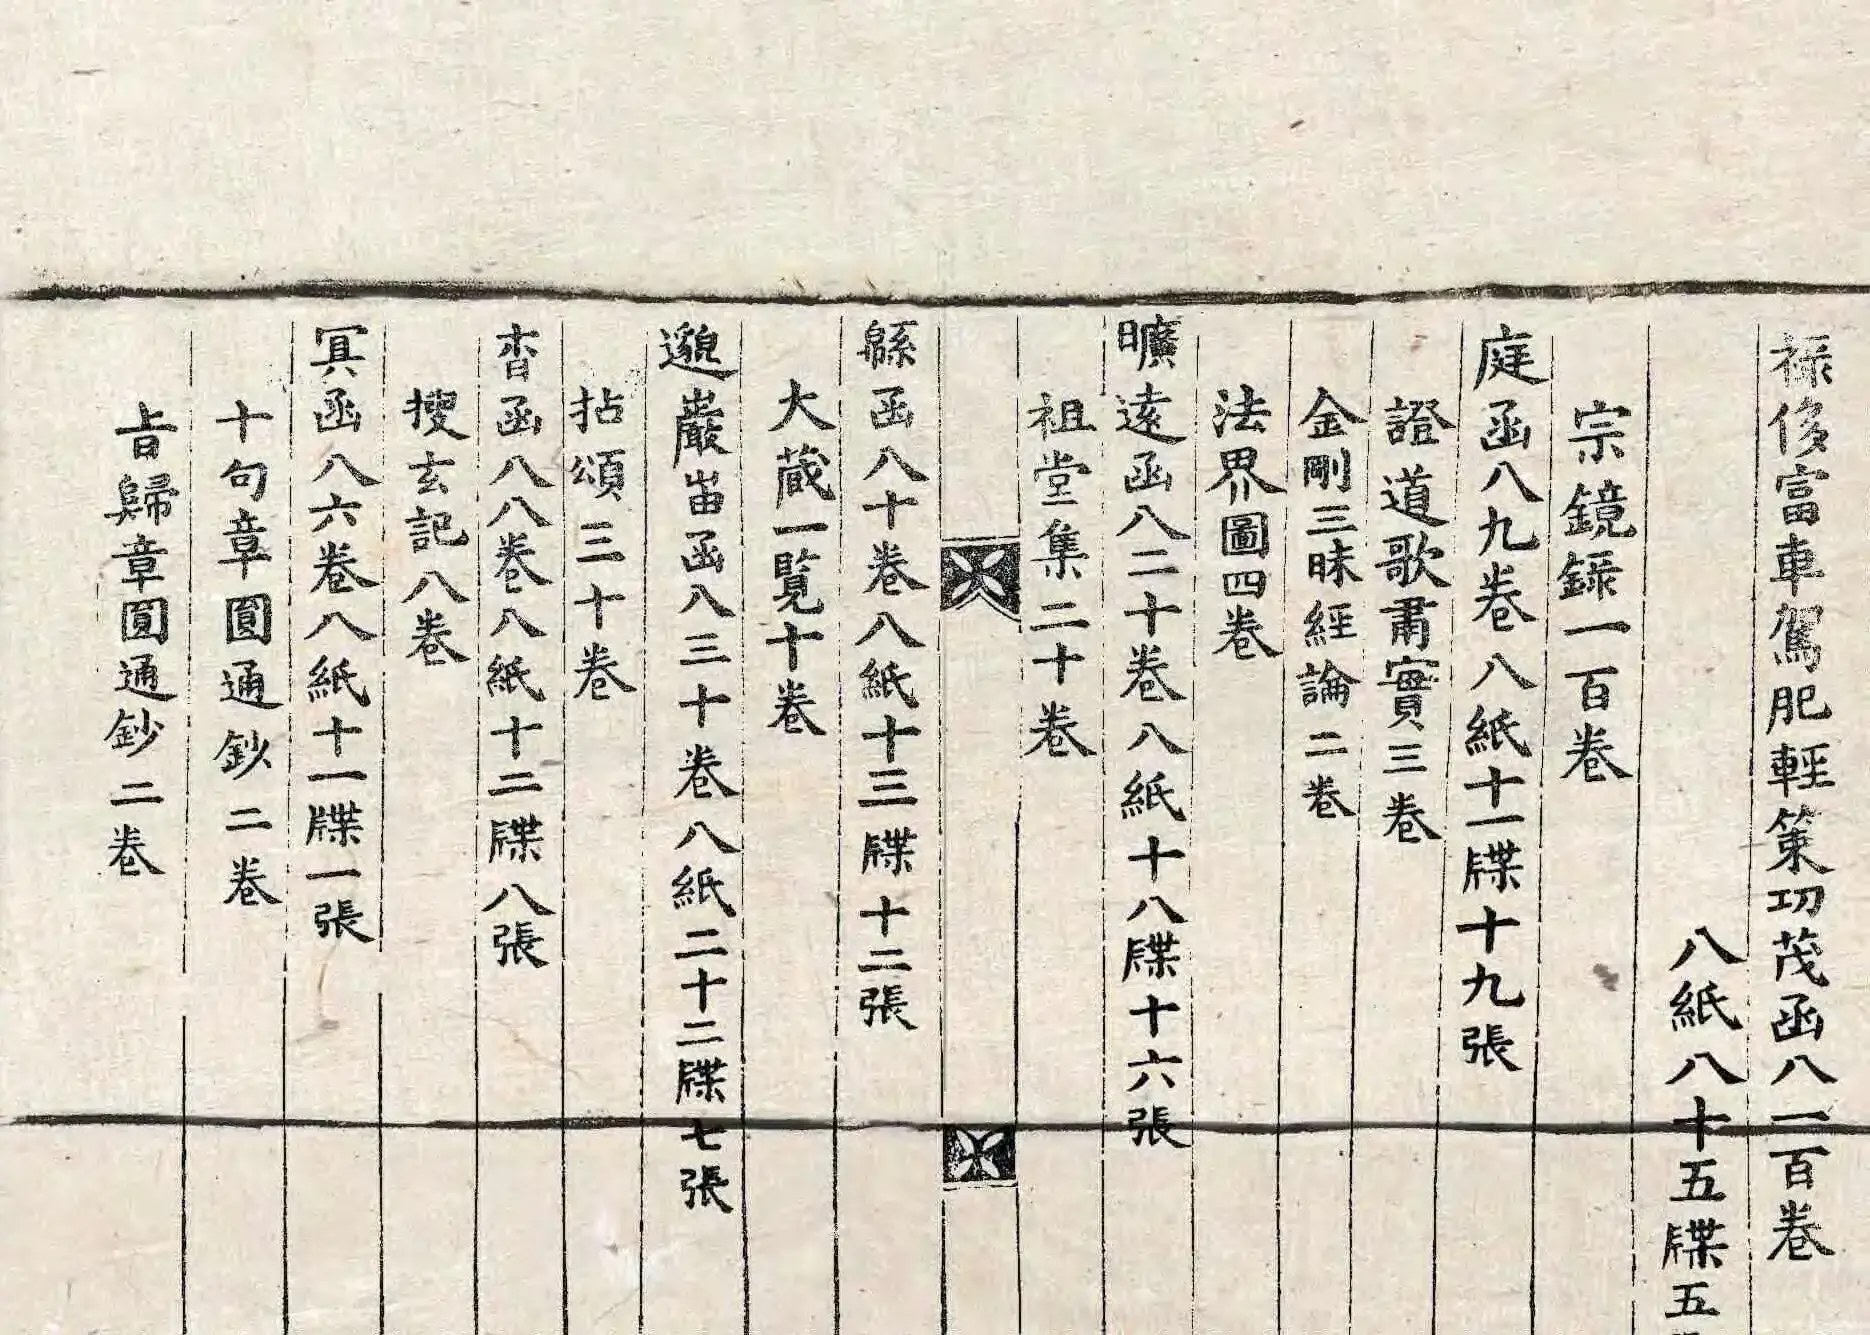 祿侈富車駕肥輕策功茂函入一百卷
入紙八十五牒五
宗鏡錄一百卷
庭函入九卷入紙十一牒十九張
證道歌事實三卷
金剛三昧經論二卷
法界圖四卷
曠遠函入二十卷入紙十八牒十六張
祖堂集二十卷
緜函入十卷入紙十三牒十二張
大蔵一覧十卷
邈巖岫函入三十卷入紙二十二牒七張
拈頌三十卷
杳函入八卷入紙十二牒八張
搜玄記八卷
冥函入六卷入紙十一牒一張
十句章圓通鈔二卷
旨歸章圓通鈔二卷